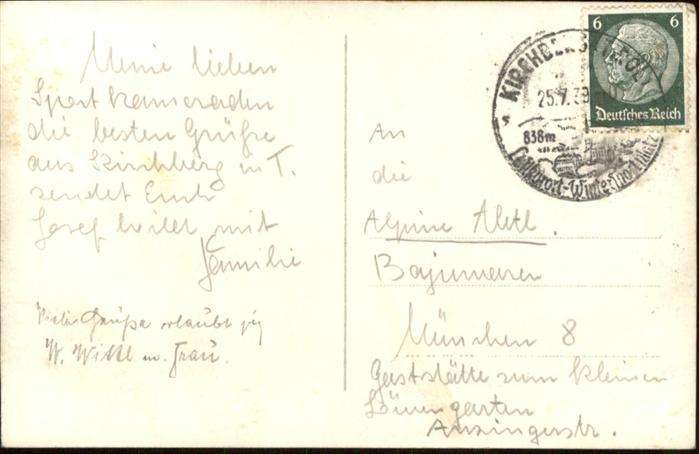 Meine lieben
Sportkameraden
die besten Grüße
aus Kirchberg in T.
sendet Euch
Josef Wittl mit
Familie
Viele Grüße erlaubt sich
W. Wittl u. Frau.
KIRCHBERG (TIROL)
25.7.39
838m
Luftkurort-Wintersportplatz
6 6
Deutsches Reich
An
die
Alpine Abtl.
Bajuwaren
München 8
Gaststätte zum kleinen
Löwengarten
Anzingerstr.